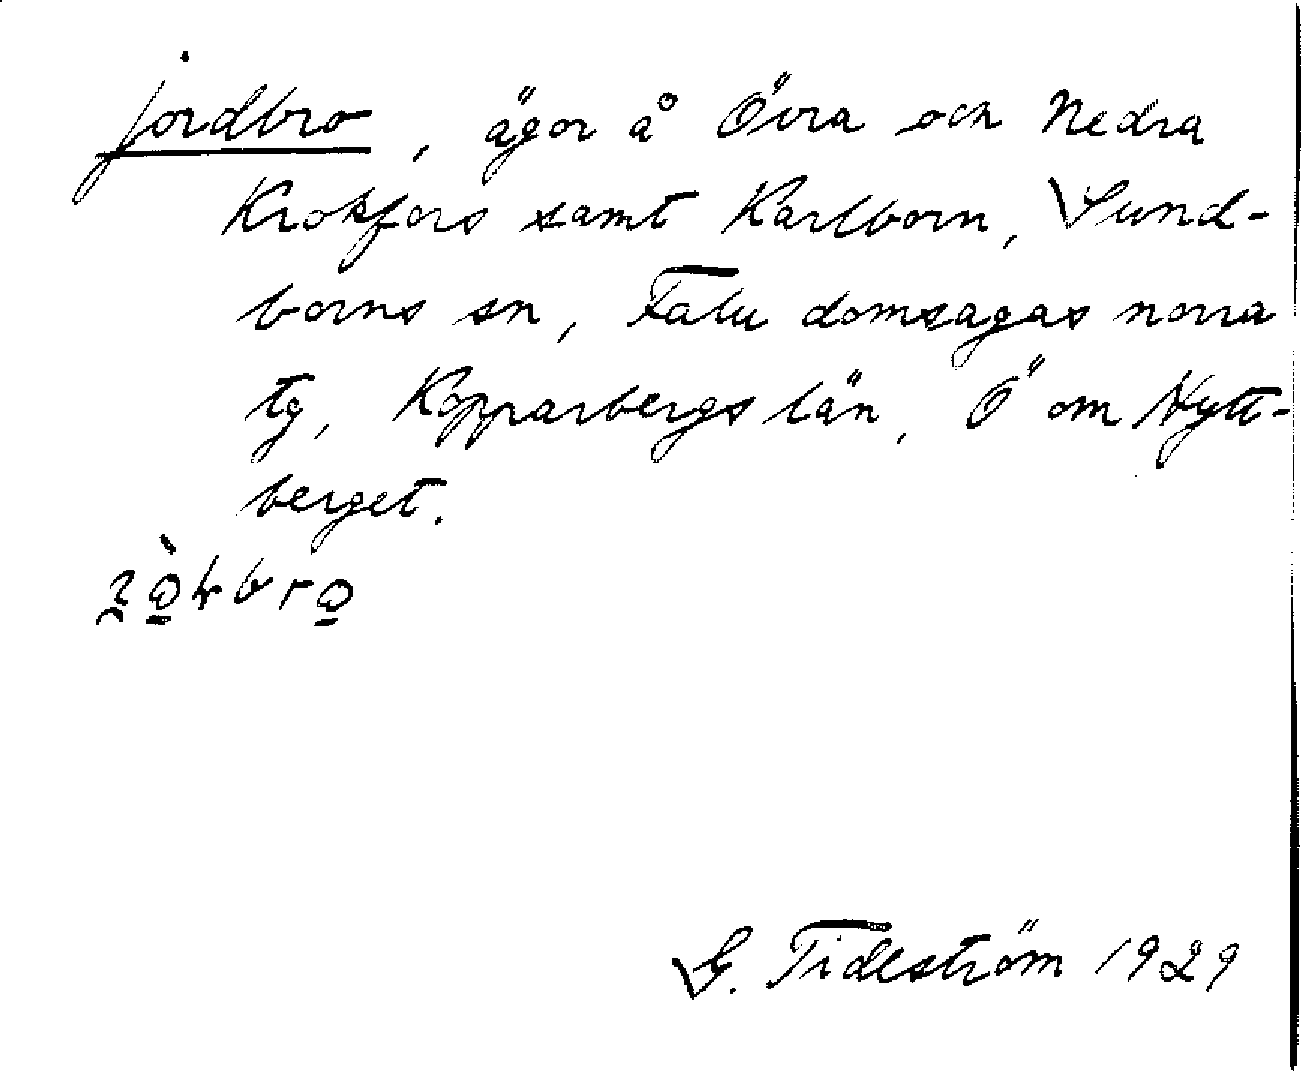 jordbro, ägor å Övra och Nedra
Krokfors samt Karlborn, Sund-
borns sn, Falu domsagas norra
tg, Kopparbergs län, Ö om Nytt-
berget.
G. Tideström 1929